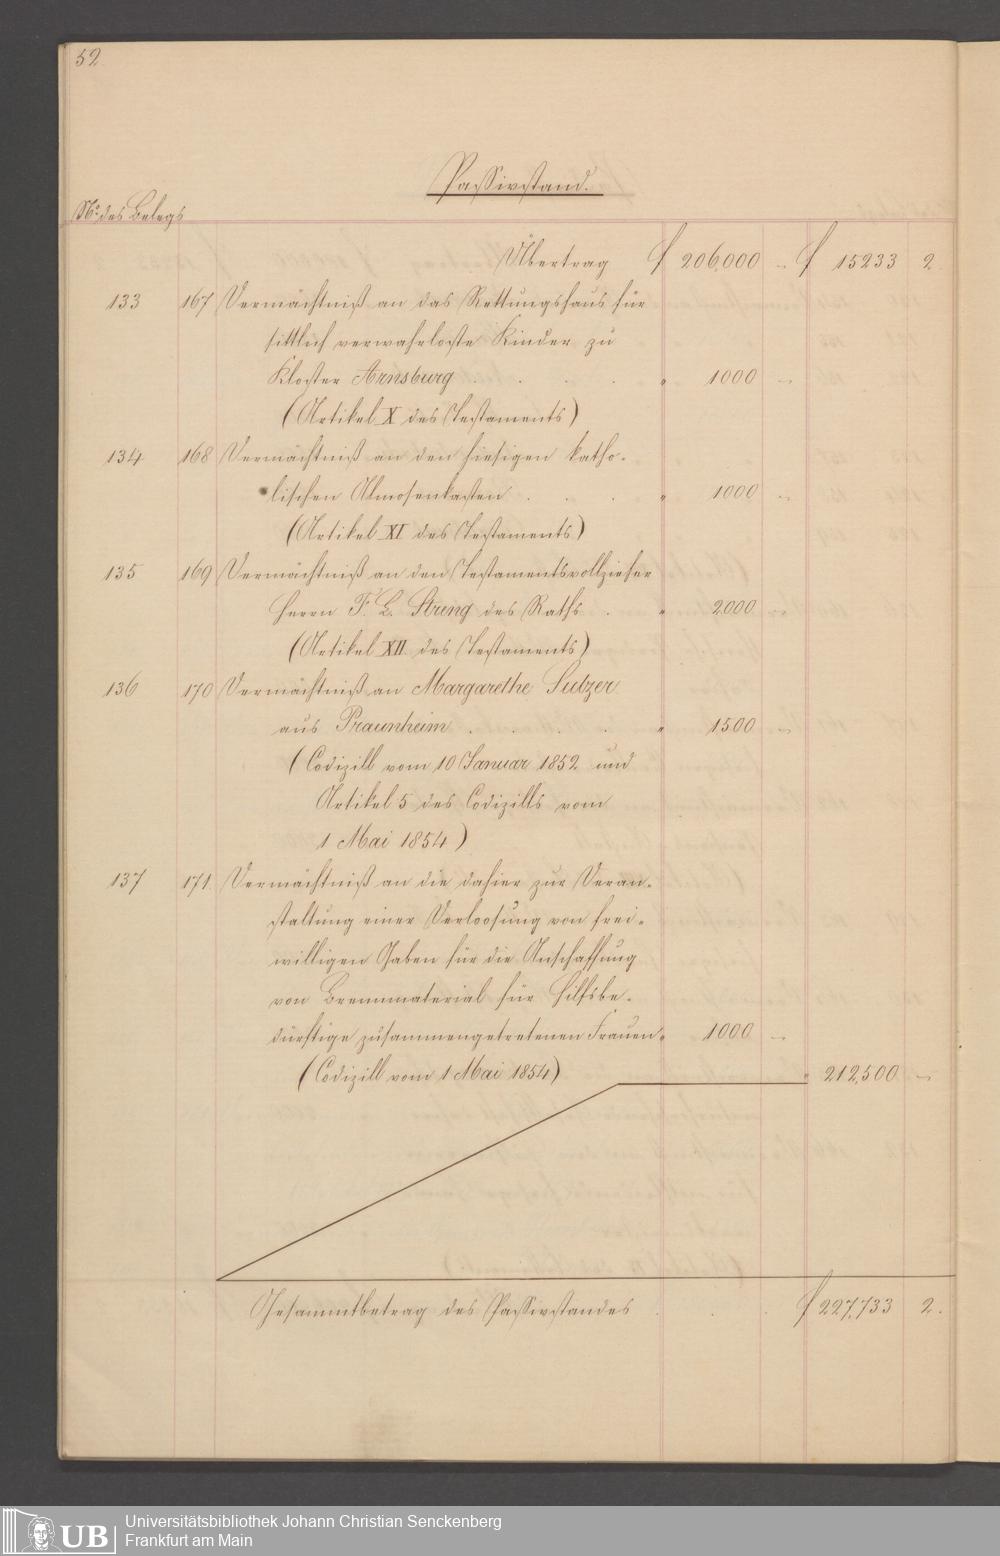 52
Passivstand.
No. des Belegs
Übertrag f 206,000 – f 15233 2.
133 167 Vermächtniß an das Rettungshaus für
sittlich verwahrloste Kinder zu
Kloster Arnsburg . . . . " 1000 –
(Artikel X des Testaments)
134 168 Vermächtniß an den hiesigen katho-
lischen Almosenkasten . . . " 1000 –
(Artikel XI des Testaments)
135 169 Vermächtniß an den Testamentsvollzieher
Herrn F. L. Streng des Raths . " 2000 –
(Artikel XII des Testaments)
136 170 Vermächtniß an Margarethe Sulzer
aus Praunheim . . . . " 1500 –
(Codizill vom 10 Januar 1852 und
Artikel 5 des Codizills vom
1 Mai 1854)
137 171. Vermächtniß an die dahier zur Veran-
staltung einer Verloosung von frei-
willigen Gaben für die Anschaffung
von Brennmaterial für Hilfsbe-
dürftige zusammengetretenen Frauen " 1000 –
(Codizill vom 1 Mai 1854) " 212,500 –
Gesammtbetrag des Passivstandes . . . f 227,733 2.
UB
Universitätsbibliothek Johann Christian Senckenberg
Frankfurt am Main